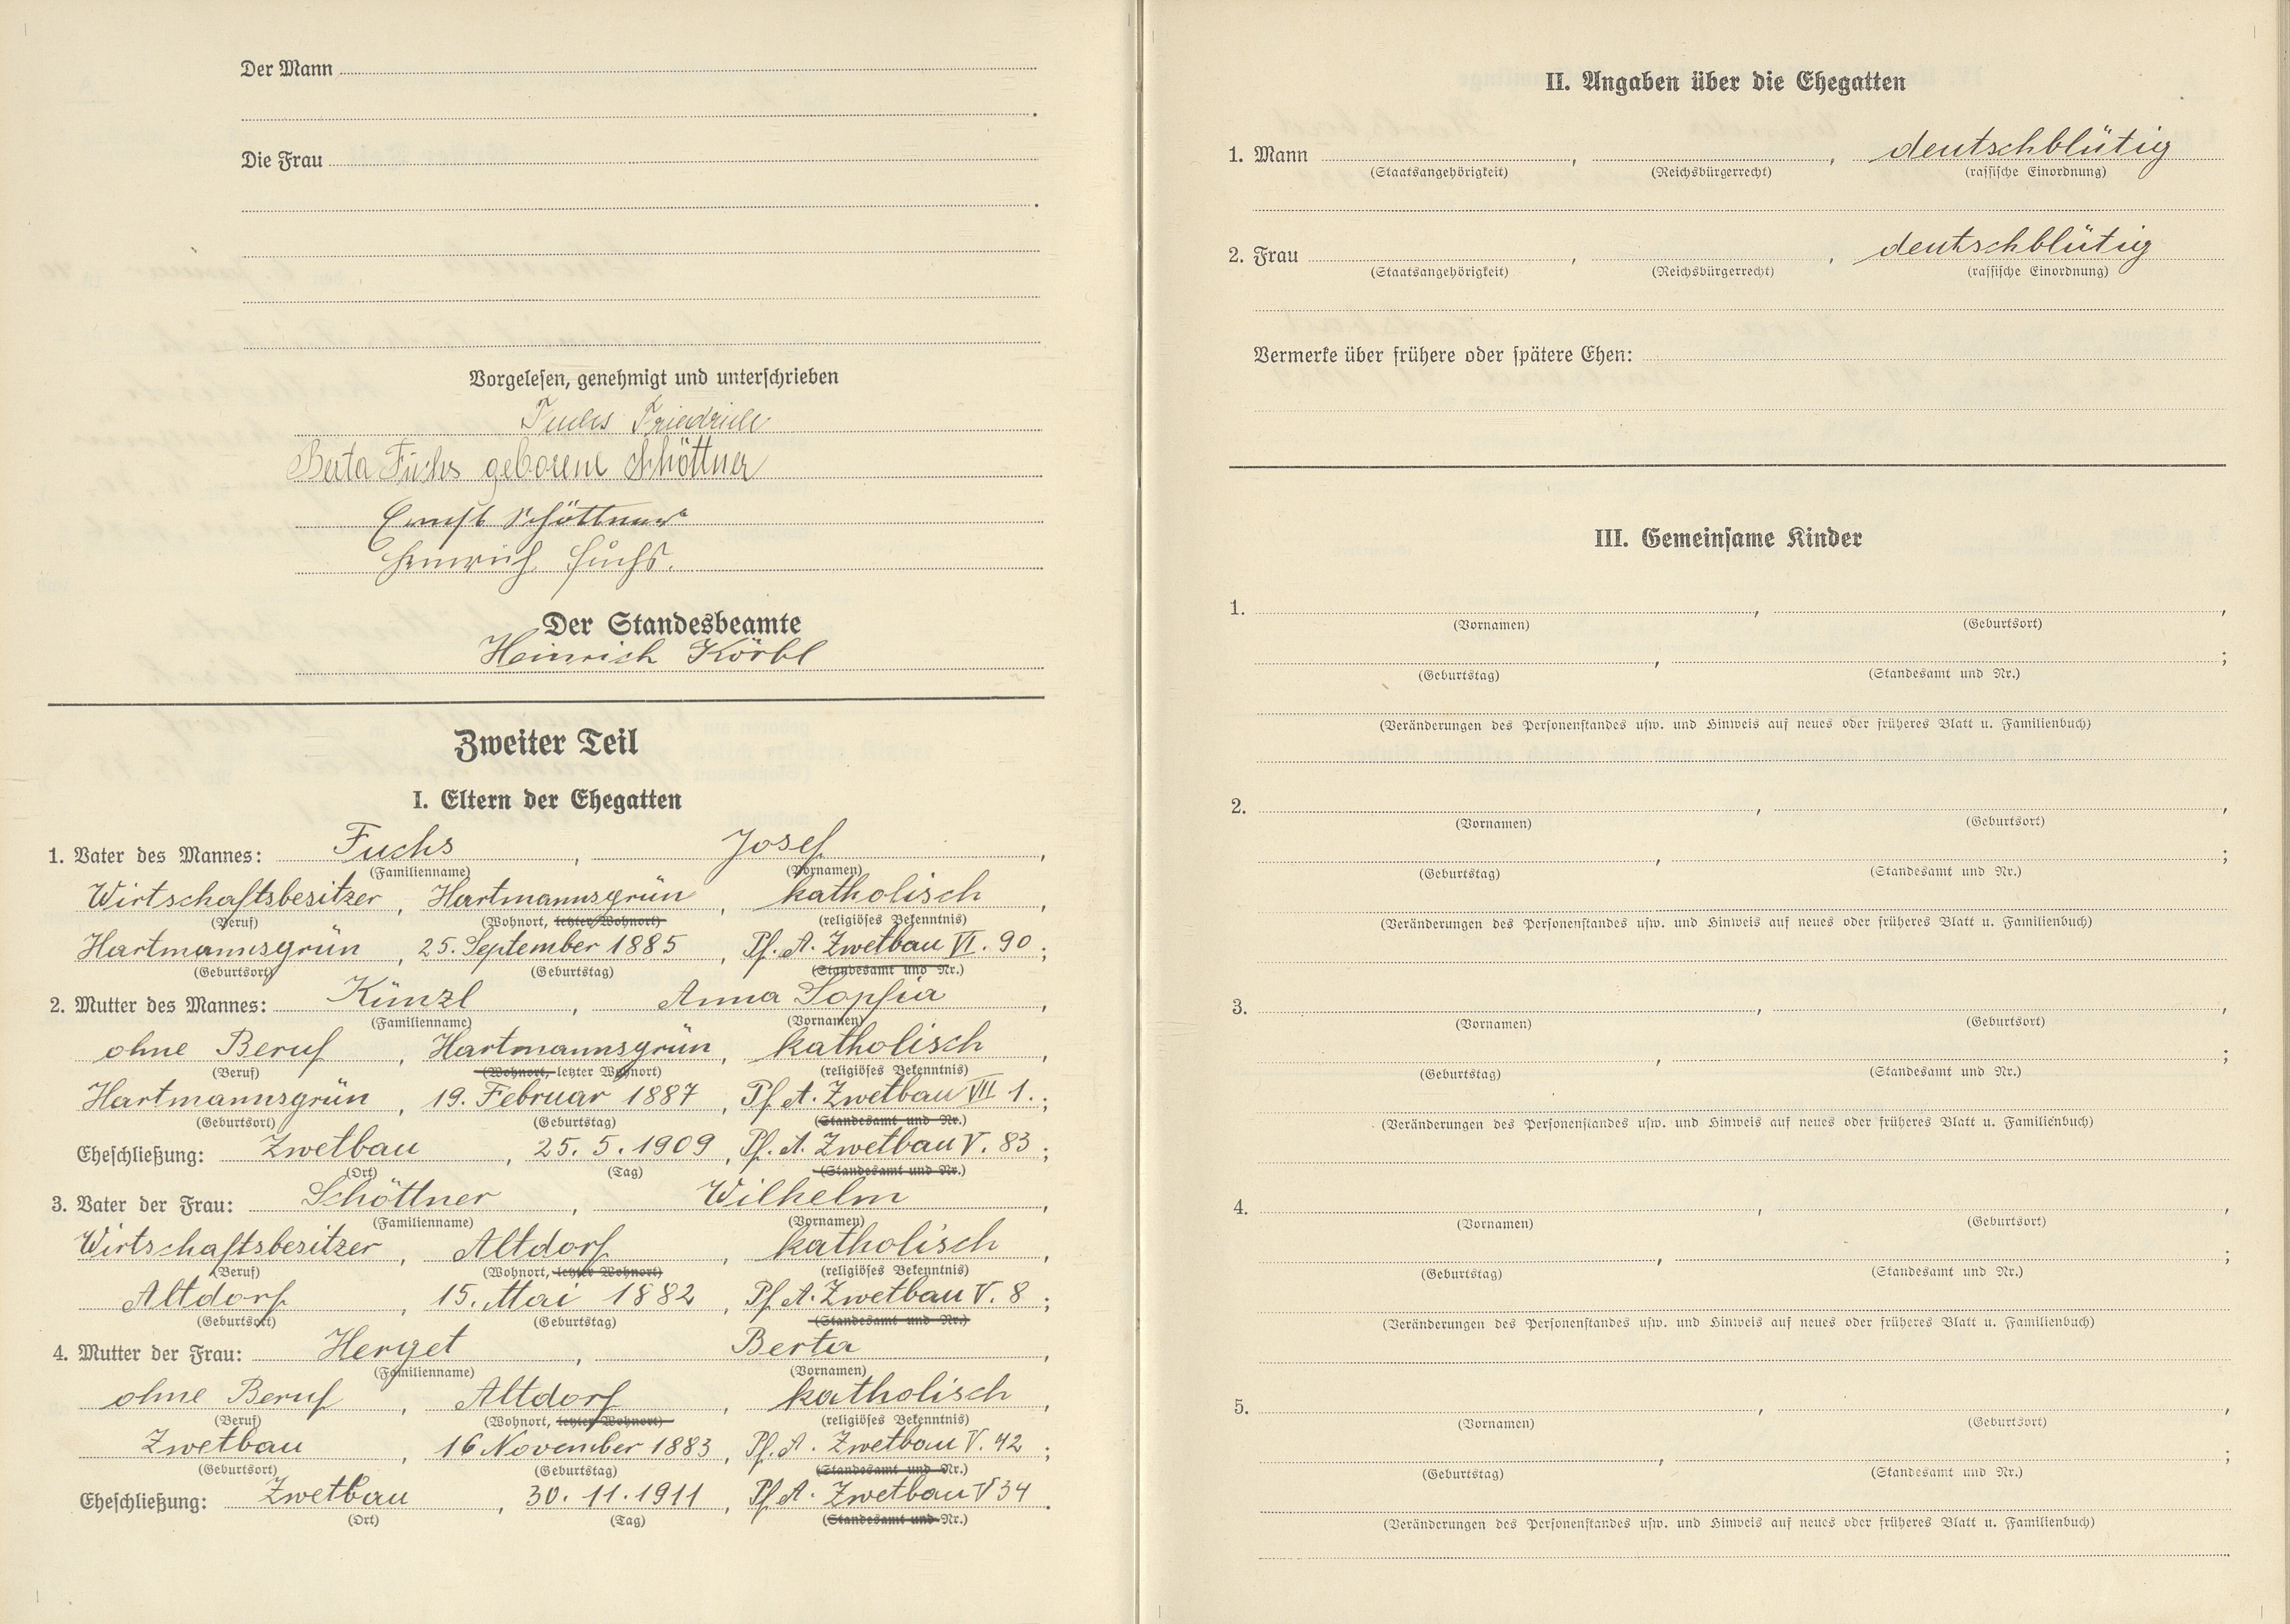 Der Mann
Die Frau
Vorgelesen, genehmigt und unterschrieben
Fuchs Friedrich
Berta Fuchs geborene Schöttner
Ernst Schöttner
Heinrich Fuchs.
Der Standesbeamte
Heinrich Körbl
Zweiter Teil
I. Eltern der Ehegatten
1. Vater des Mannes: Fuchs, Josef,
(Familienname) (Vornamen)
Wirtschaftsbesitzer, Hartmannsgrün, katholisch,
(Beruf) (Wohnort, letzter Wohnort) (religiöses Bekenntnis)
Hartmannsgrün, 25. September 1885, Pf. A. Zwetbau VI. 90;
(Geburtsort) (Geburtstag) (Standesamt und Nr.)
2. Mutter des Mannes: Künzl, Anna Sophia,
(Familienname) (Vornamen)
ohne Beruf, Hartmannsgrün, katholisch,
(Beruf) (Wohnort, letzter Wohnort) (religiöses Bekenntnis)
Hartmannsgrün, 19. Februar 1887, Pf. A. Zwetbau VII 1.;
(Geburtsort) (Geburtstag) (Standesamt und Nr.)
Eheschließung: Zwetbau, 25. 5. 1909, Pf. A. Zwetbau V. 83;
(Ort) (Tag) (Standesamt und Nr.)
3. Vater der Frau: Schöttner, Wilhelm,
(Familienname) (Vornamen)
Wirtschaftsbesitzer, Altdorf, katholisch,
(Beruf) (Wohnort, letzter Wohnort) (religiöses Bekenntnis)
Altdorf, 15. Mai 1882, Pf. A. Zwetbau V. 8;
(Geburtsort) (Geburtstag) (Standesamt und Nr.)
4. Mutter der Frau: Herget, Berta,
(Familienname) (Vornamen)
ohne Beruf, Altdorf, katholisch,
(Beruf) (Wohnort, letzter Wohnort) (religiöses Bekenntnis)
Zwetbau, 16 November 1883, Pf. A. Zwetbau V. 42;
(Geburtsort) (Geburtstag) (Standesamt und Nr.)
Eheschließung: Zwetbau, 30. 11. 1911, Pf. A. Zwetbau V 34.
(Ort) (Tag) (Standesamt und Nr.)
II. Angaben über die Ehegatten
1. Mann , , deutschblütig
(Staatsangehörigkeit) (Reichsbürgerrecht) (rassische Einordnung)
2. Frau , , deutschblütig
(Staatsangehörigkeit) (Reichsbürgerrecht) (rassische Einordnung)
Vermerke über frühere oder spätere Ehen:
III. Gemeinsame Kinder
1. , ,
(Vornamen) (Geburtsort)
, ;
(Geburtstag) (Standesamt und Nr.)
(Veränderungen des Personenstandes usw. und Hinweis auf neues oder früheres Blatt u. Familienbuch)
2. , ,
(Vornamen) (Geburtsort)
, ;
(Geburtstag) (Standesamt und Nr.)
(Veränderungen des Personenstandes usw. und Hinweis auf neues oder früheres Blatt u. Familienbuch)
3. , ,
(Vornamen) (Geburtsort)
, ;
(Geburtstag) (Standesamt und Nr.)
(Veränderungen des Personenstandes usw. und Hinweis auf neues oder früheres Blatt u. Familienbuch)
4. , ,
(Vornamen) (Geburtsort)
, ;
(Geburtstag) (Standesamt und Nr.)
(Veränderungen des Personenstandes usw. und Hinweis auf neues oder früheres Blatt u. Familienbuch)
5. , ,
(Vornamen) (Geburtsort)
, ;
(Geburtstag) (Standesamt und Nr.)
(Veränderungen des Personenstandes usw. und Hinweis auf neues oder früheres Blatt u. Familienbuch)